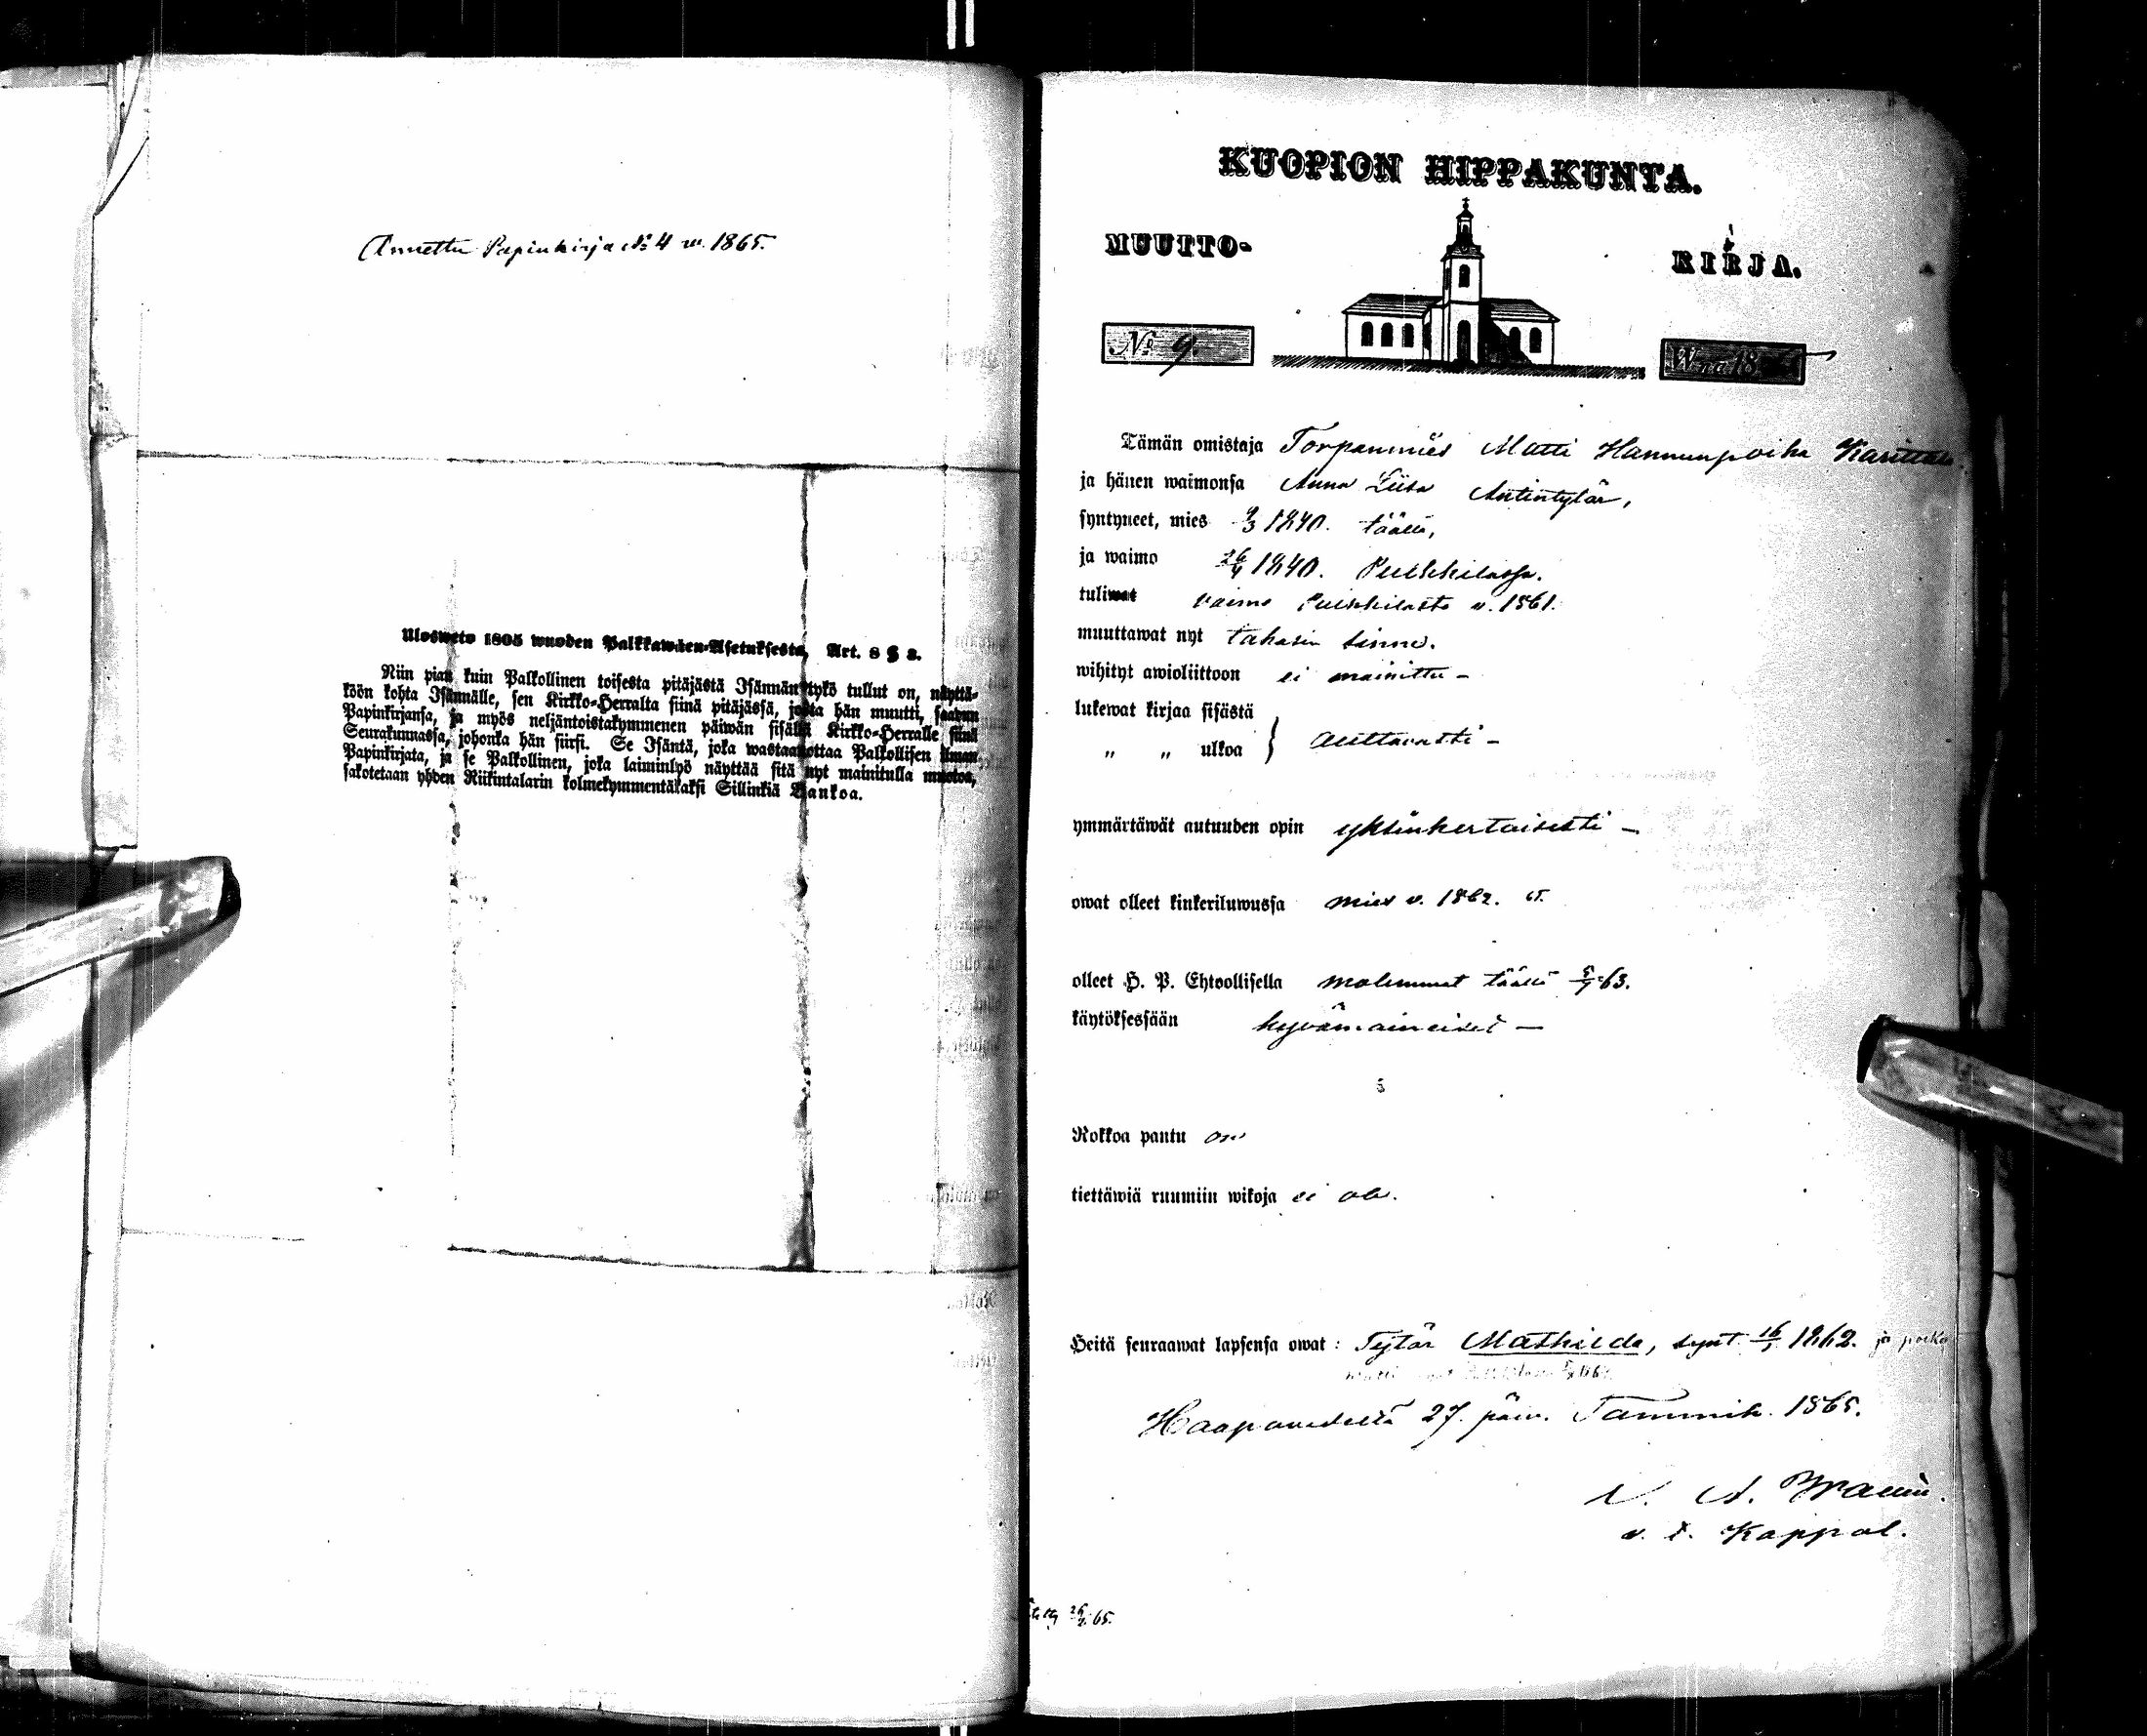 Annettu Papinkirja No 4 w. 1865.
Ulosweto 1805 wuoden Palkkawäen-Asetuksesta, Art. 8 § 2.
Niin pian kuin Palkollinen toisesta pitäjästä Isännän tykö tullut on, näyttä-
köön kohta Isännälle, sen Kirkko-Herralta siinä pitäjässä, josta hän muutti, saadun
Papinkirjansa, ja myös neljäntoistakymmenen päiwän sisällä Kirkko-Herralle siinä
Seurakunnassa, johonka hän siirsi. Se Isäntä, joka wastaanottaa Palkollisen ilman
Papinkirjata, ja se Palkollinen, joka laiminlyö näyttää sitä nyt mainitulla muotoa,
sakotetaan yhden Riikintalarin kolmekymmentäkaksi Sillinkiä Bankoa.
KUOPION HIPPAKUNTA.
MUUTTO- KIRJA.
No 9. W:na 18
Tämän omistaja Torpanmies Matti Hannunpoika
ja hänen waimonsa Anna Liisa Antintytär,
syntyneet, mies 9/3 1840. täällä,
ja waimo 26/4 1840. Pulkkilassa.
tuliwat vaimo Pulkkilasta v. 1861.
muuttawat nyt takasin sinne.
wihityt awioliittoon ei mainittu -
lukewat kirjaa sisästä
" " ulkoa } auttavasti -
ymmärtäwät autuuden opin yksinkertaisesti -
owat olleet kinkeriluwussa mies v. 1862.
olleet H. P. Ehtoollisella molemmat täällä 5/7 63.
käytöksessään hyvämaineiset -
Rokkoa pantu on
tiettäwiä ruumiin wikoja ei ole.
Heitä seuraawat lapsensa owat: Tytär Mathilda, synt. 16/7 1862. ja poika
Haapavedeltä 27. päiv. Tammik. 1865.
v. t. Kappal.
26/2 65.